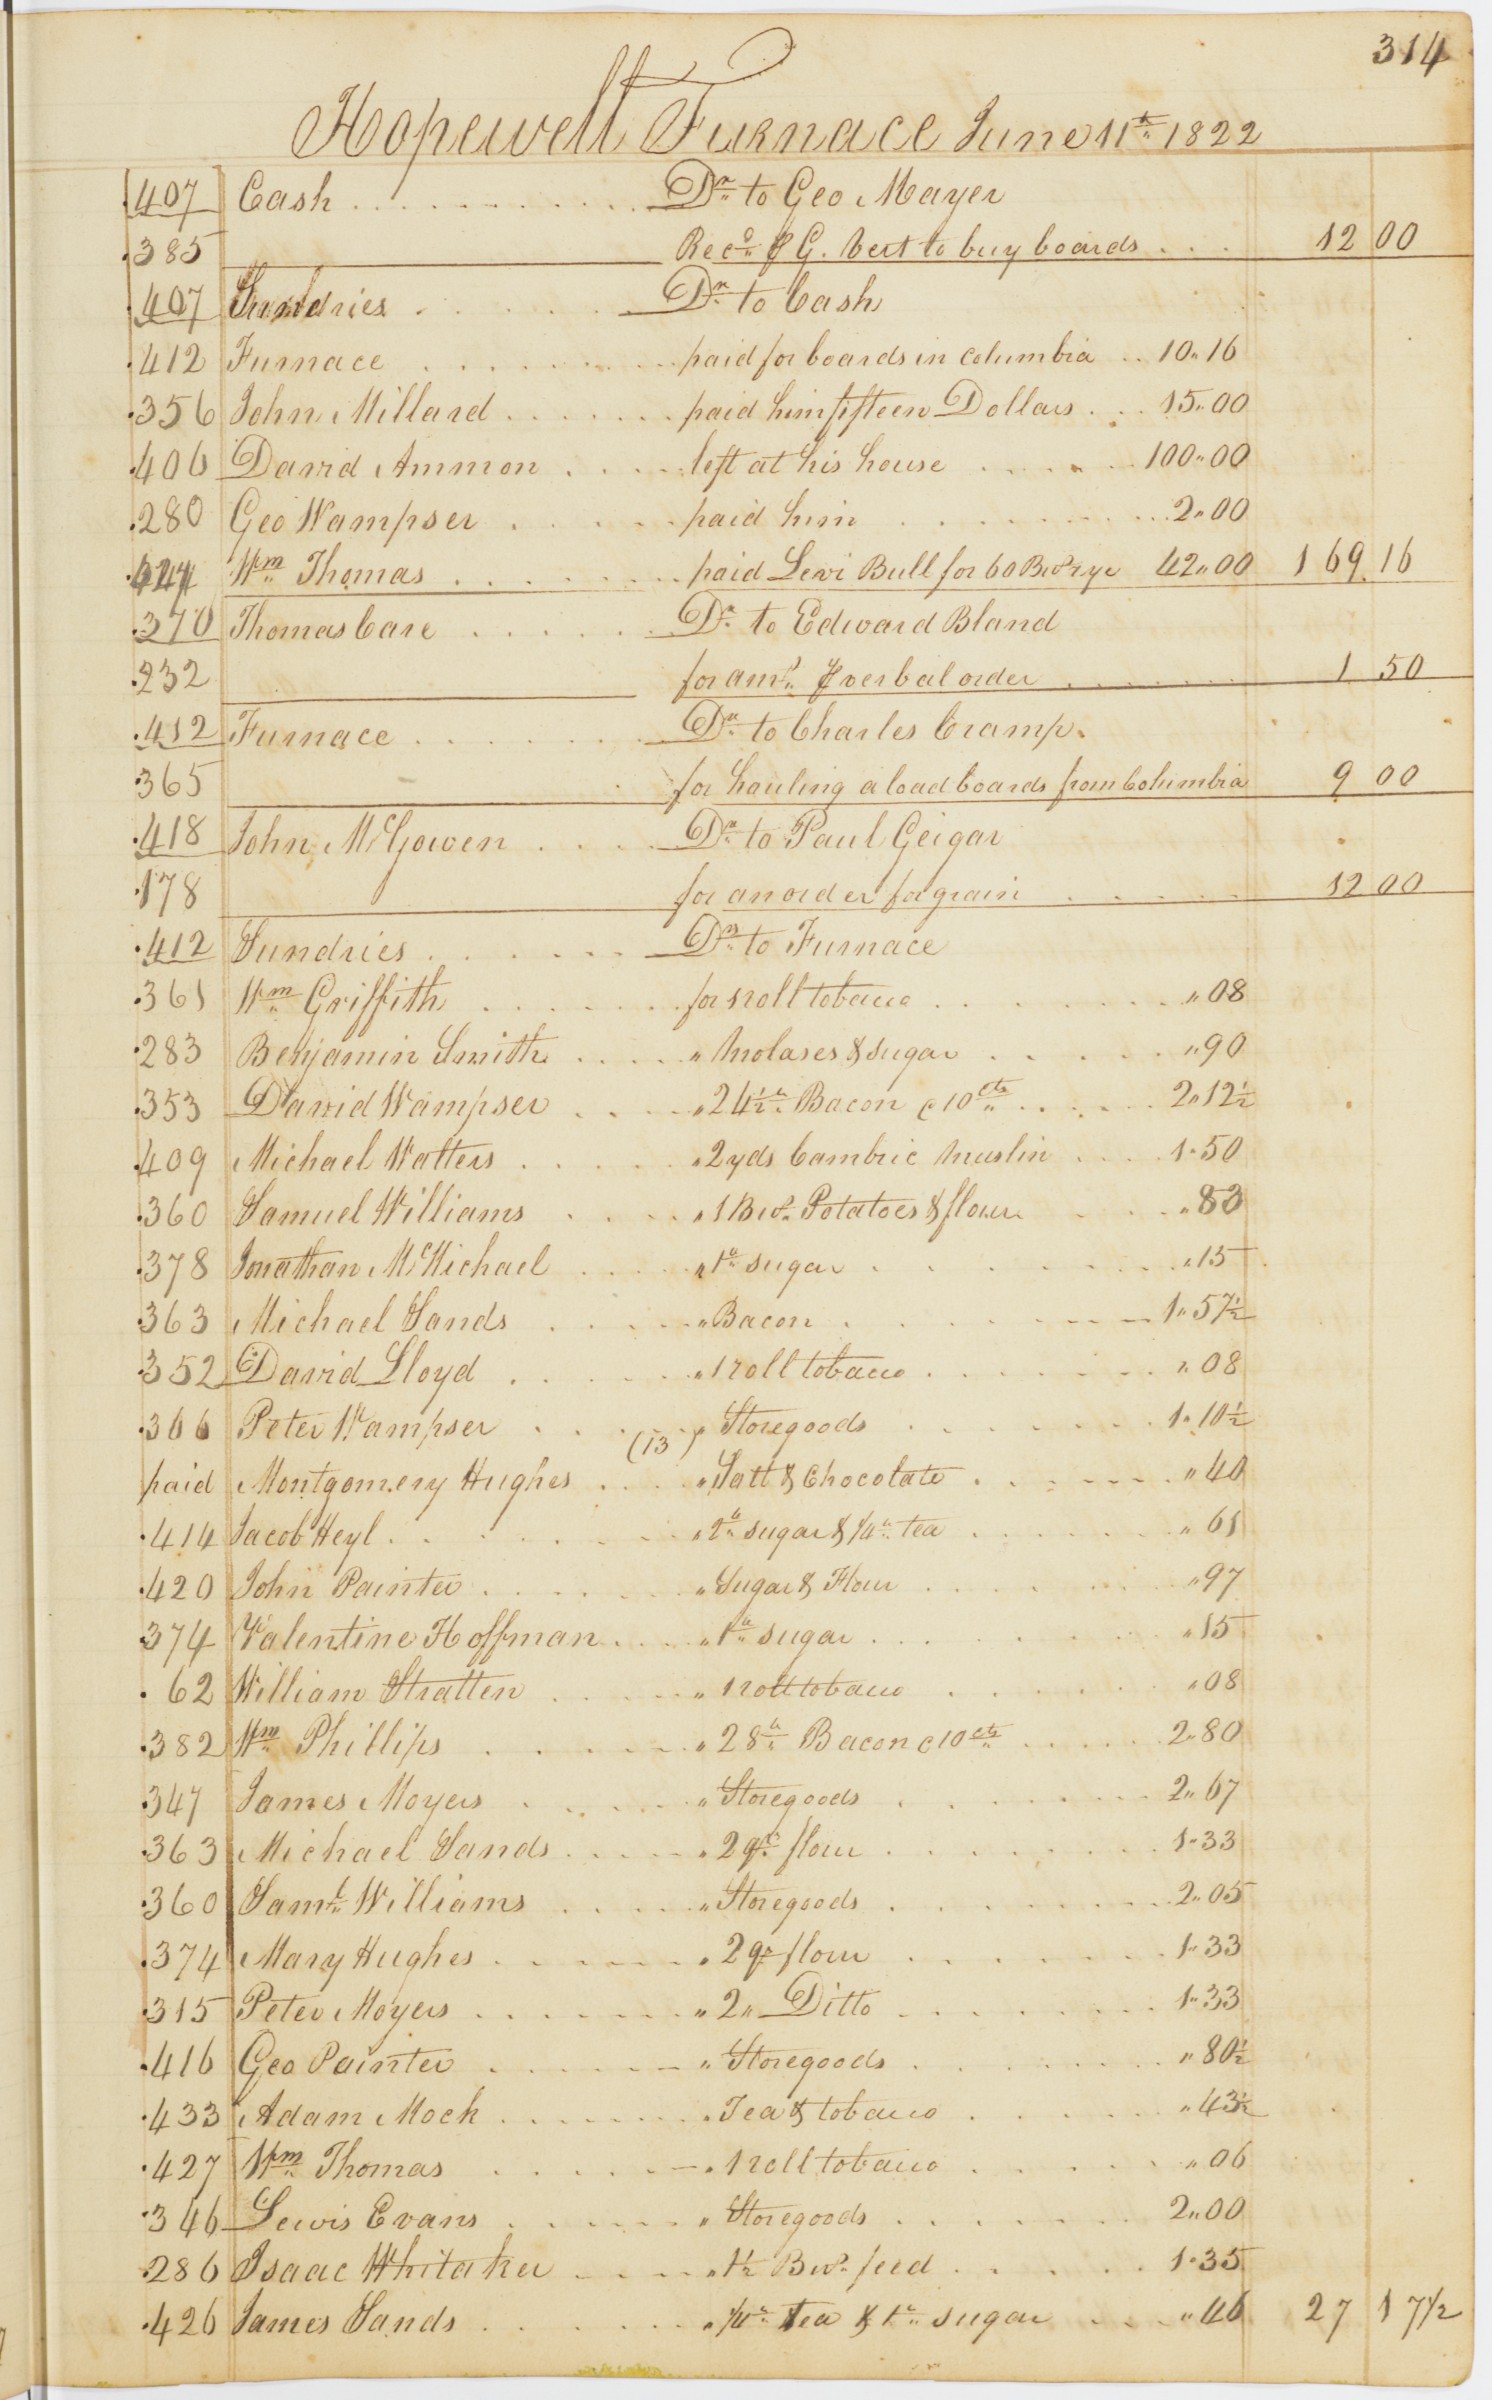 314
Hopewell Furnace June 11th 1822
407 Cash . . . . . . . . . . . Dr to Geo Mayer
385 Recd ⅌ G. Bert to buy boards . . . 12 00
407 Sundries . . . . . . Dr to Cash
412 Furnace . . . . . . . . . paid for boards in Columbia .. 10"16
356 John Millard . . . . . . . paid him fifteen Dollars . . . 15"00
406 David Ammon . . . . . left at his house . . . . . . 100"00
280 Geo Wampser . . . . . . paid him . . . . . . . . . 2"00
Wm Thomas . . . . . . . . paid Levi Bull for 60 Bus rye 42"00 169 16
370 Thomas Care . . . . . . Dr to Edward Bland
232 for amt ⅌ verbal order . . . . . . 1 50
412 Furnace . . . . . . . Dr to Charles Cramp.
365 for hauling a load boards from Columbia 9 00
418 John McGowen . . . . Dr to Paul Geigar
178 for an order for grain . . . . . 12 00
412 Sundries . . . . . . Dr to Furnace
361 Wm Griffith . . . . . . . for 1 roll tobacco . . . . . . . "08
283 Benjamin Smith . . . . . " Molases & sugar . . . . . "90
353 David Wampser . . . . . " 24½ lb Bacon c 10 cts . . . . . 2"12½
409 Michael Watters . . . . . . " 2 yds Cambric Muslin . . . . 1"50
360 Samuel Williams . . . . . " 1 Bus. Potatoes & flour . . . . "83
378 Jonathan McMichael . . . . . " 1 lb sugar . . . . . . . . "15
363 Michael Sands . . . . . " Bacon . . . . . . . . 1"57½
352 David Lloyd . . . . . . " 1 roll tobacco . . . . . . . "08
366 Peter Wampser . . . . . " Storegoods . . . . . . . 1"10½
paid Montgomery Hughes . . . . (13) " Salt & Chocolate . . . . . . "40
414 Jacob Heyl . . . . . . . . " 2 lb sugar & ¼ lb tea . . . . . . "61
420 John Painter . . . . . . . " Sugar & Flour . . . . . . "97
374 Valentine Hoffman . . . . " 1 lb sugar . . . . . . . "15
62 William Stratten . . . . . " 1 roll tobacco . . . . . . "08
382 Wm Phillips . . . . . . " 28 lb Bacon c 10 cts . . . . . 2"80
347 James Moyers . . . . . . " Storegoods . . . . . . . 2"67
363 Michael Sands . . . . . " 2 qr flour . . . . . . . . 1"33
360 Saml Williams . . . . . " Storegoods . . . . . . . . 2"05
374 Mary Hughes . . . . . . " 2 qr flour . . . . . . . 1"33
315 Peter Moyers . . . . . . . " 2 " Ditto . . . . . . . . 1"33
416 Geo Painter . . . . . . " Storegoods . . . . . . . "80½
433 Adam Mock . . . . . . . " Tea & tobacco . . . . . . "43½
427 Wm Thomas . . . . . . " 1 roll tobacco . . . . . . "06
346 Lewis Evans . . . . . . " Storegoods . . . . . . . 2"00
286 Isaac Whitaker . . . . " 1½ Bus. feed . . . . . . 1"35
426 James Sands . . . . . . . " ¼ lb tea & 1 lb sugar . . . . "46 27 17½